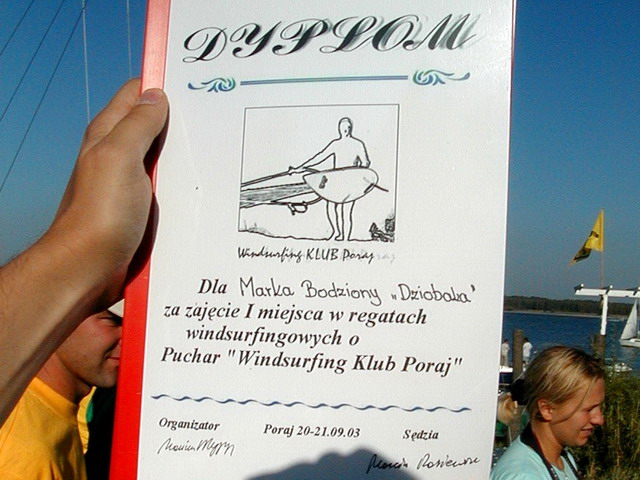 DYPLOM
Windsurfing KLUB Poraj
Dla Marka Bodziony „Dziobaka"
za zajęcie I miejsca w regatach
windsurfingowych o
Puchar "Windsurfing Klub Poraj"
Organizator Poraj 20-21.09.03 Sędzia
Marcin